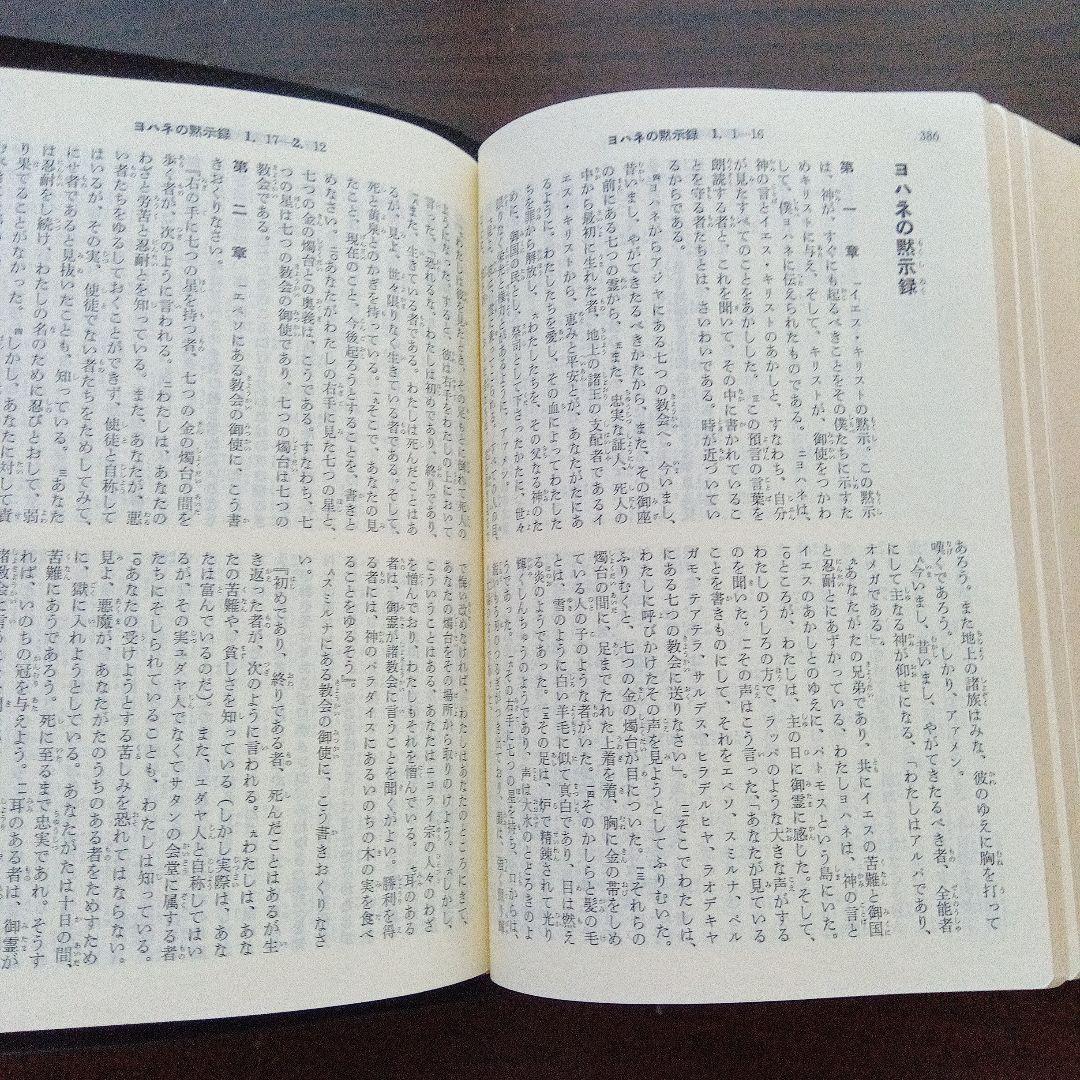 ヨハネの黙示録 1.1—16
386
ヨハネの黙示録
第一章 一イエス・キリストの黙示。この黙示
は、神が、すぐにも起るべきことをその僕たちに示すた
めキリストに与え、そして、キリストが、御使をつかわ
して、僕ヨハネに伝えられたものである。二ヨハネは、
神の言とイエス・キリストのあかしと、すなわち、自分
が見たすべてのことをあかしした。三この預言の言葉を
朗読する者と、これを聞いて、その中に書かれているこ
とを守る者たちとは、さいわいである。時が近づいてい
るからである。
四ヨハネからアジヤにある七つの教会へ。今いまし、
昔いまし、やがてきたるべきかたから、また、その御座
の前にある七つの霊から、五また、忠実な証人、死人の
中から最初に生れた者、地上の諸王の支配者であるイ
エス・キリストから、恵みと平安とが、あなたがたにあ
るように。わたしたちを愛し、その血によってわたした
ちを罪から解放し、六わたしたちを、その父なる神のた
めに、御国の民とし、祭司として下さったかたに、世々
限りなく栄光と権力とがあるように、アァメン。
あろう。また地上の諸族はみな、彼のゆえに胸を打って
嘆くであろう。しかり、アァメン。
八今いまし、昔いまし、やがてきたるべき者、全能者
にして主なる神が仰せになる、「わたしはアルパであり、
オメガである」。
九あなたがたの兄弟であり、共にイエスの苦難と御国
と忍耐とにあずかっている、わたしヨハネは、神の言と
イエスのあかしとのゆえに、パトモスという島にいた。
一〇ところが、わたしは、主の日に御霊に感じた。そして、
わたしのうしろの方で、ラッパのような大きな声がする
のを聞いた。一一その声はこう言った、「あなたが見ている
ことを書きものにして、それをエペソ、スミルナ、ペル
ガモ、テアテラ、サルデス、ヒラデルヒヤ、ラオデキヤ
にある七つの教会に送りなさい」。一二そこでわたしは、
わたしに呼びかけたその声を見ようとしてふりむいた。
ふりむくと、七つの金の燭台が目についた。一三それらの
燭台の間に、足までたれた上着を着、胸に金の帯をしめ
ている人の子のような者がいた。一四そのかしらと髪の毛
とは、雪のように白い羊毛に似て真白であり、目は燃え
る炎のようであった。一五その足は、炉で精錬されて光り
輝くしんちゅうのようであり、声は大水のとどろきのよ
うであった。一六その右手に七つの星を持ち、口からは、
ヨハネの黙示録 1.17—2.12
言った、「恐れるな。わたしは初めであり、終りであり、
一八また、生きている者である。わたしは死んだことはあ
るが、見よ、世々限りなく生きている者である。そして、
死と黄泉とのかぎを持っている。一九そこで、あなたの見
たこと、現在のこと、今後起ろうとすることを、書きと
めなさい。二〇あなたがわたしの右手に見た七つの星と、
七つの金の燭台との奥義は、こうである。すなわち、七
つの星は七つの教会の御使であり、七つの燭台は七つの
教会である。
第二章 一エペソにある教会の御使に、こう書
きおくりなさい。
『右の手に七つの星を持つ者、七つの金の燭台の間を
歩く者が、次のように言われる。二わたしは、あなたの
わざと労苦と忍耐とを知っている。また、あなたが、悪
い者たちをゆるしておくことができず、使徒と自称して
はいるが、その実、使徒でない者たちをためしてみて、
にせ者であると見抜いたことも、知っている。三あなた
は忍耐をし続け、わたしの名のために忍びとおして、弱
り果てることがなかった。四しかし、あなたに対して責
で悔い改めなければ、わたしはあなたのところにきて、
あなたの燭台をその場所から取りのけよう。六しかし、
こういうことはある、あなたはニコライ宗の人々のわざ
を憎んでおり、わたしもそれを憎んでいる。七耳のある
者は、御霊が諸教会に言うことを聞くがよい。勝利を得
る者には、神のパラダイスにあるいのちの木の実を食べ
ることをゆるそう』。
八スミルナにある教会の御使に、こう書きおくりなさ
い。
『初めであり、終りである者、死んだことはあるが生
き返った者が、次のように言われる。九わたしは、あな
たの苦難や、貧しさを知っている（しかし実際は、あな
たは富んでいるのだ）。また、ユダヤ人と自称してはい
るが、その実ユダヤ人でなくてサタンの会堂に属する者
たちにそしられていることも、わたしは知っている。
一〇あなたの受けようとする苦しみを恐れてはならない。
見よ、悪魔が、あなたがたのうちのある者をためすため
に、獄に入れようとしている。あなたがたは十日の間、
苦難にあうであろう。死に至るまで忠実であれ。そうす
れば、いのちの冠を与えよう。一一耳のある者は、御霊が